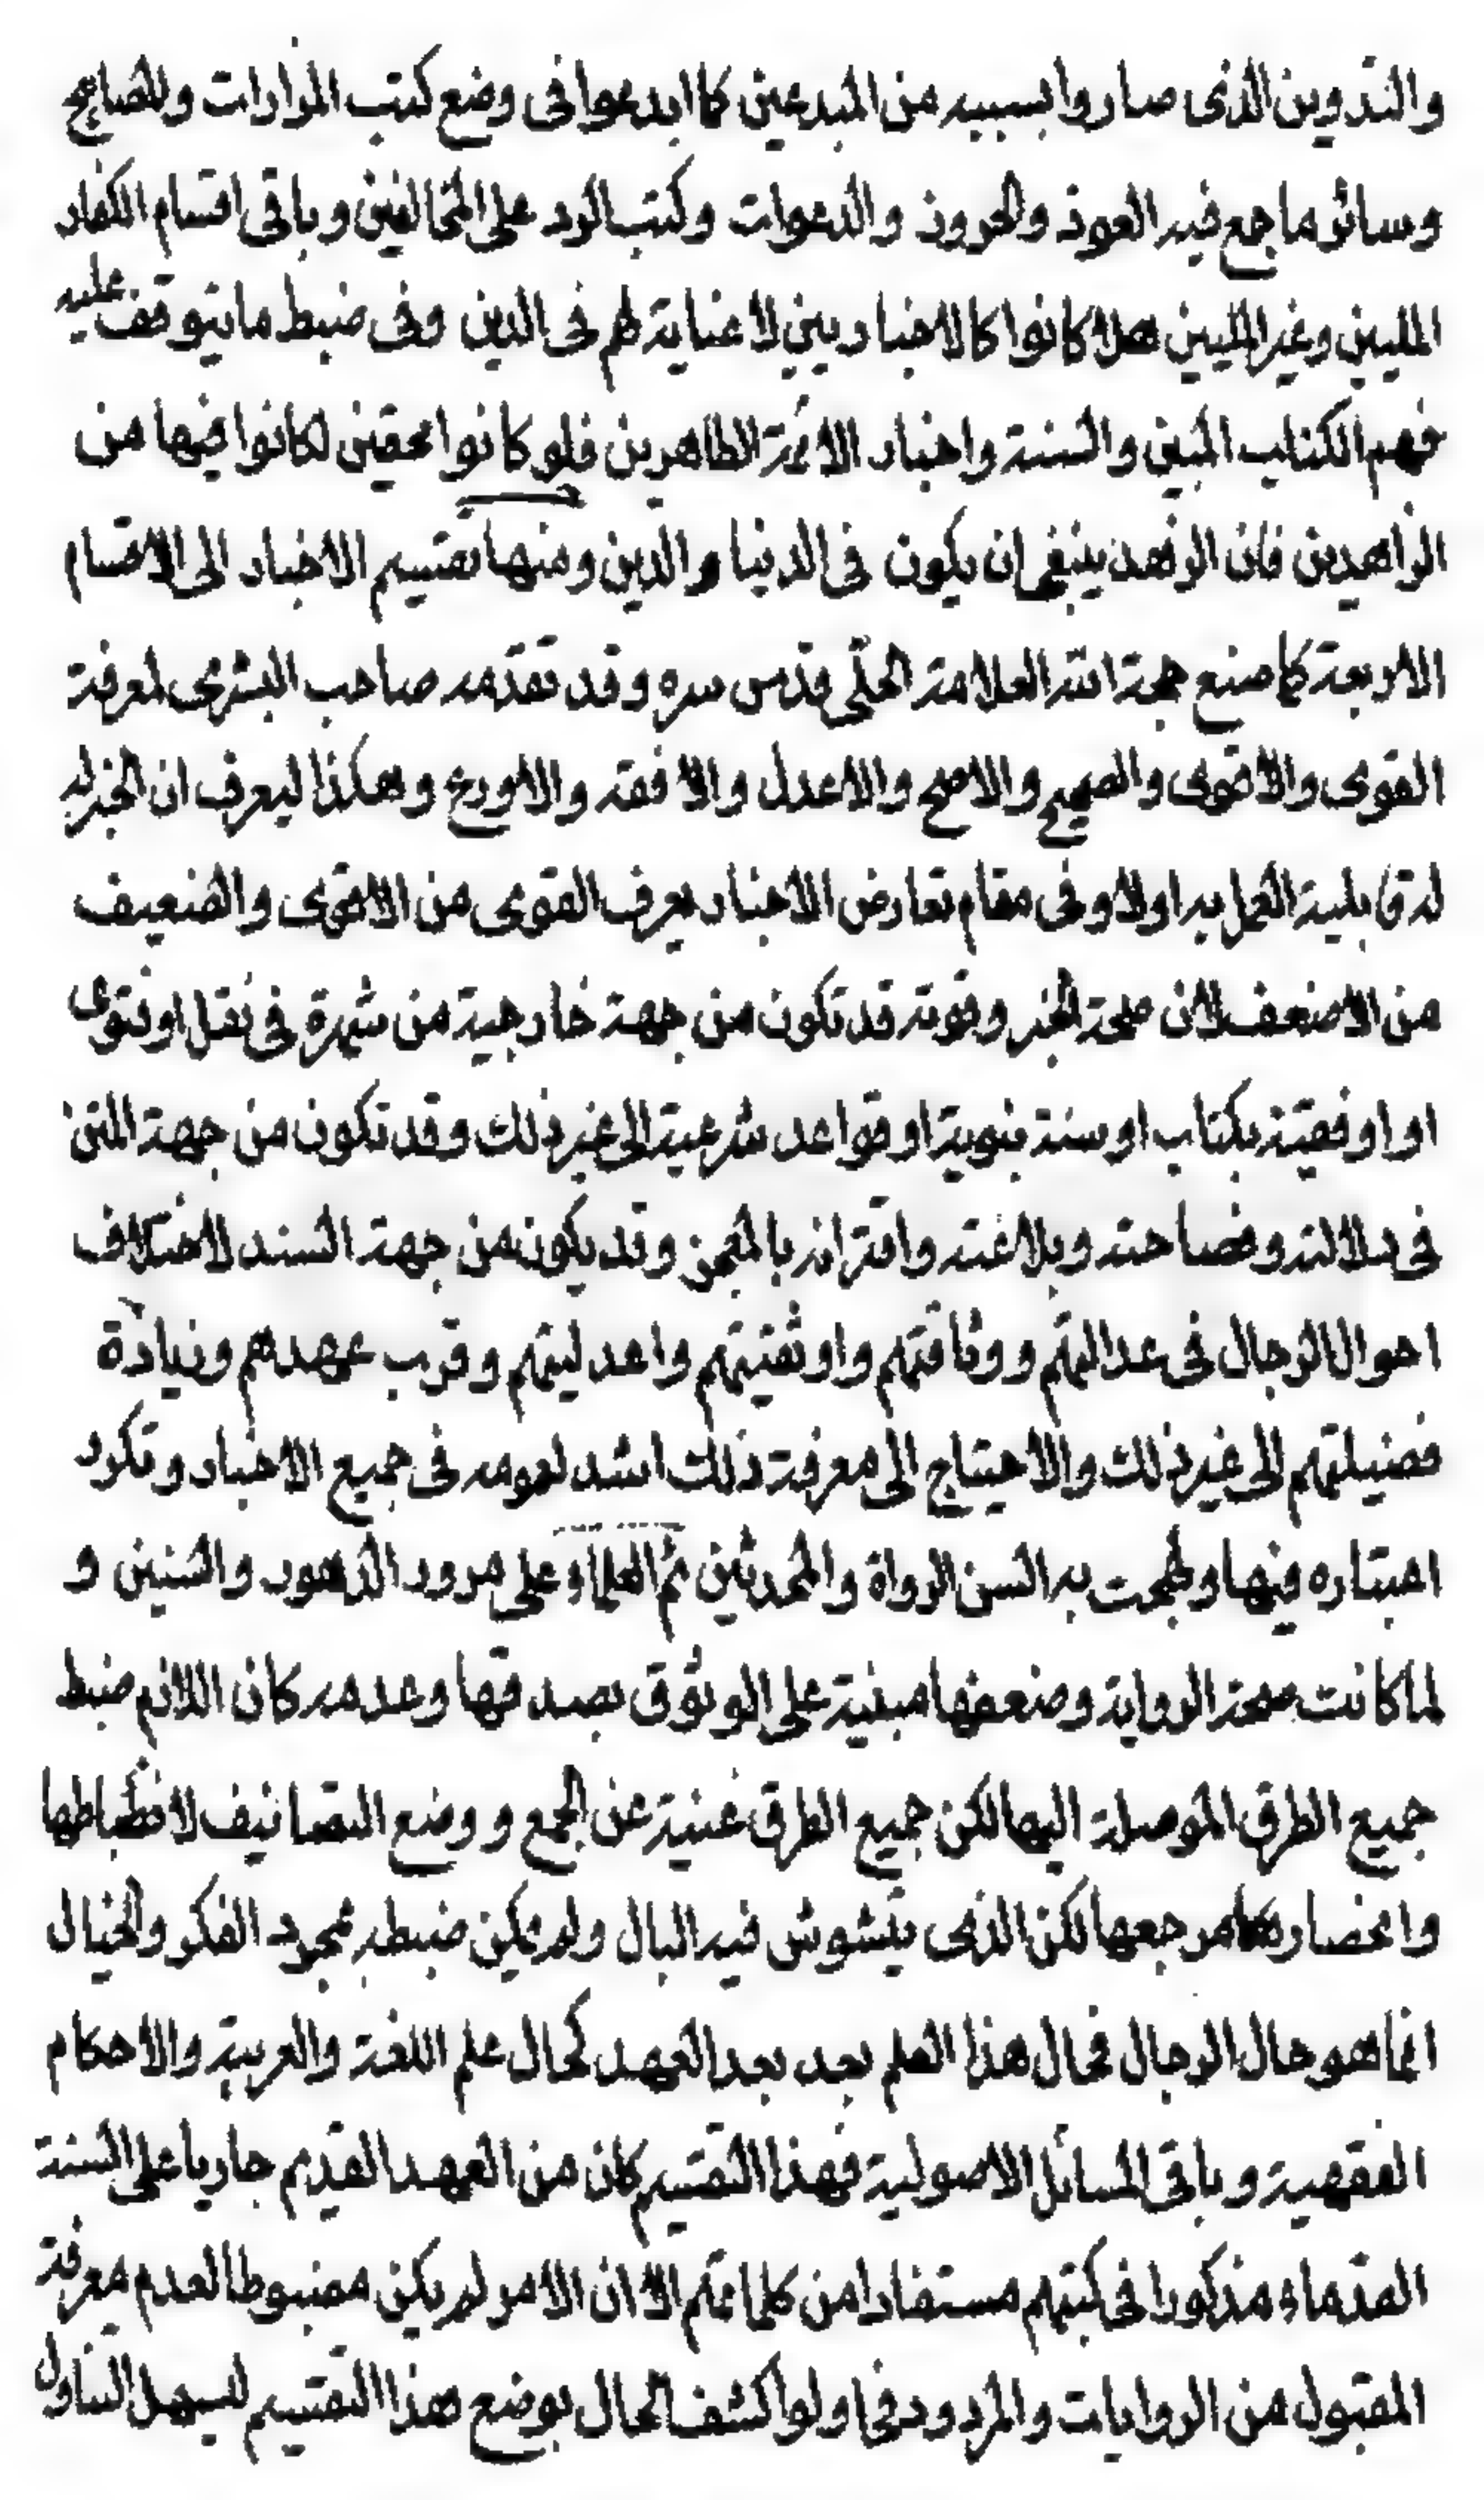 والتدوين الذى صاروا بسببه من المبدعين كما ابدعوا فى وضع كتب المزارات والمصابيح
وسائر ما جمع فيه العوذ والحروز والدعوات وكتب الرد على المخالفين وباقى اقسام الكفار
المليين وغير المليين هلا كانوا كالاخباريين لا عناية لهم فى الدين وفى ضبط ما يتوقف عليه
فهم الكتاب المبين والسنة واخبار الائمة الطاهرين فلو كانوا محقين لكانوا فيها من
الزاهدين فان الزهد ينبغى ان يكون فى الدنيا والدين ومنها تقسيم الاخبار الى الاقسام
الاربعة كما صنع حجة الله العلامة الحلّى قدس سره وقد تقدمه صاحب البشرى لمعرفة
القوى والاقوى والصحيح والاصح والاعدل والافقه والاورع وهكذا ليعرف ان الخبر له
له قابلية العمل به اولا وفى مقام تعارض الاخبار يعرف القوى من الاقوى والضعيف
من الاضعف لان صحة الخبر وقوته قد تكون من جهة خارجية من شهرة فى نقل او فتوى
او اوفقية بكتاب او سنة نبوية او قواعد شرعية الى غير ذلك وقد تكون من جهة المتن
فى دلالته وفصاحته وبلاغته واقترانه بالمعجز وقد يكون من جهة السند لاختلاف
احوال الرجال فى عدالتهم ووثاقتهم واوثقيتهم واعدليتهم وقرب عهدهم وزيادة
فضيلتهم الى غير ذلك والاحتياج الى معرفة ذلك اشد لعمومه فى جميع الاخبار وتكرر
اعتباره فيها ولهجت به السن الرواة والمحدثين ثم العلماء وعلى مرور الدهور والسنين و
لما كانت صحة الرواية وضعفها مبنية على الوثوق بصدقها وعدمه كان اللازم ضبط
جميع الطرق الموصلة اليها لكن جميع الطرق غنية عن الجمع و وضع التصانيف لانضباطها
وانحصار مرجعها لكن الذى يتشوش فيه البال ولم يمكن ضبطه بمجرد الفكر والخيال
انما هو حال الرجال فحال هذا العلم بعد بعد العهد كحال علم اللغة والعربية والاحكام
الفقهية وباقى المسائل الاصولية فهذا التقسيم كان من العهد القديم جاريا على السنة
القدماء مذكورا فى كتبهم مستفادا من كلماتهم الا ان الامر لم يكن مضبوطا لعدم معرفة
المقبول من الروايات والمردود فحاولوا كشف الحال بوضع هذا التقسيم ليسهل التناول